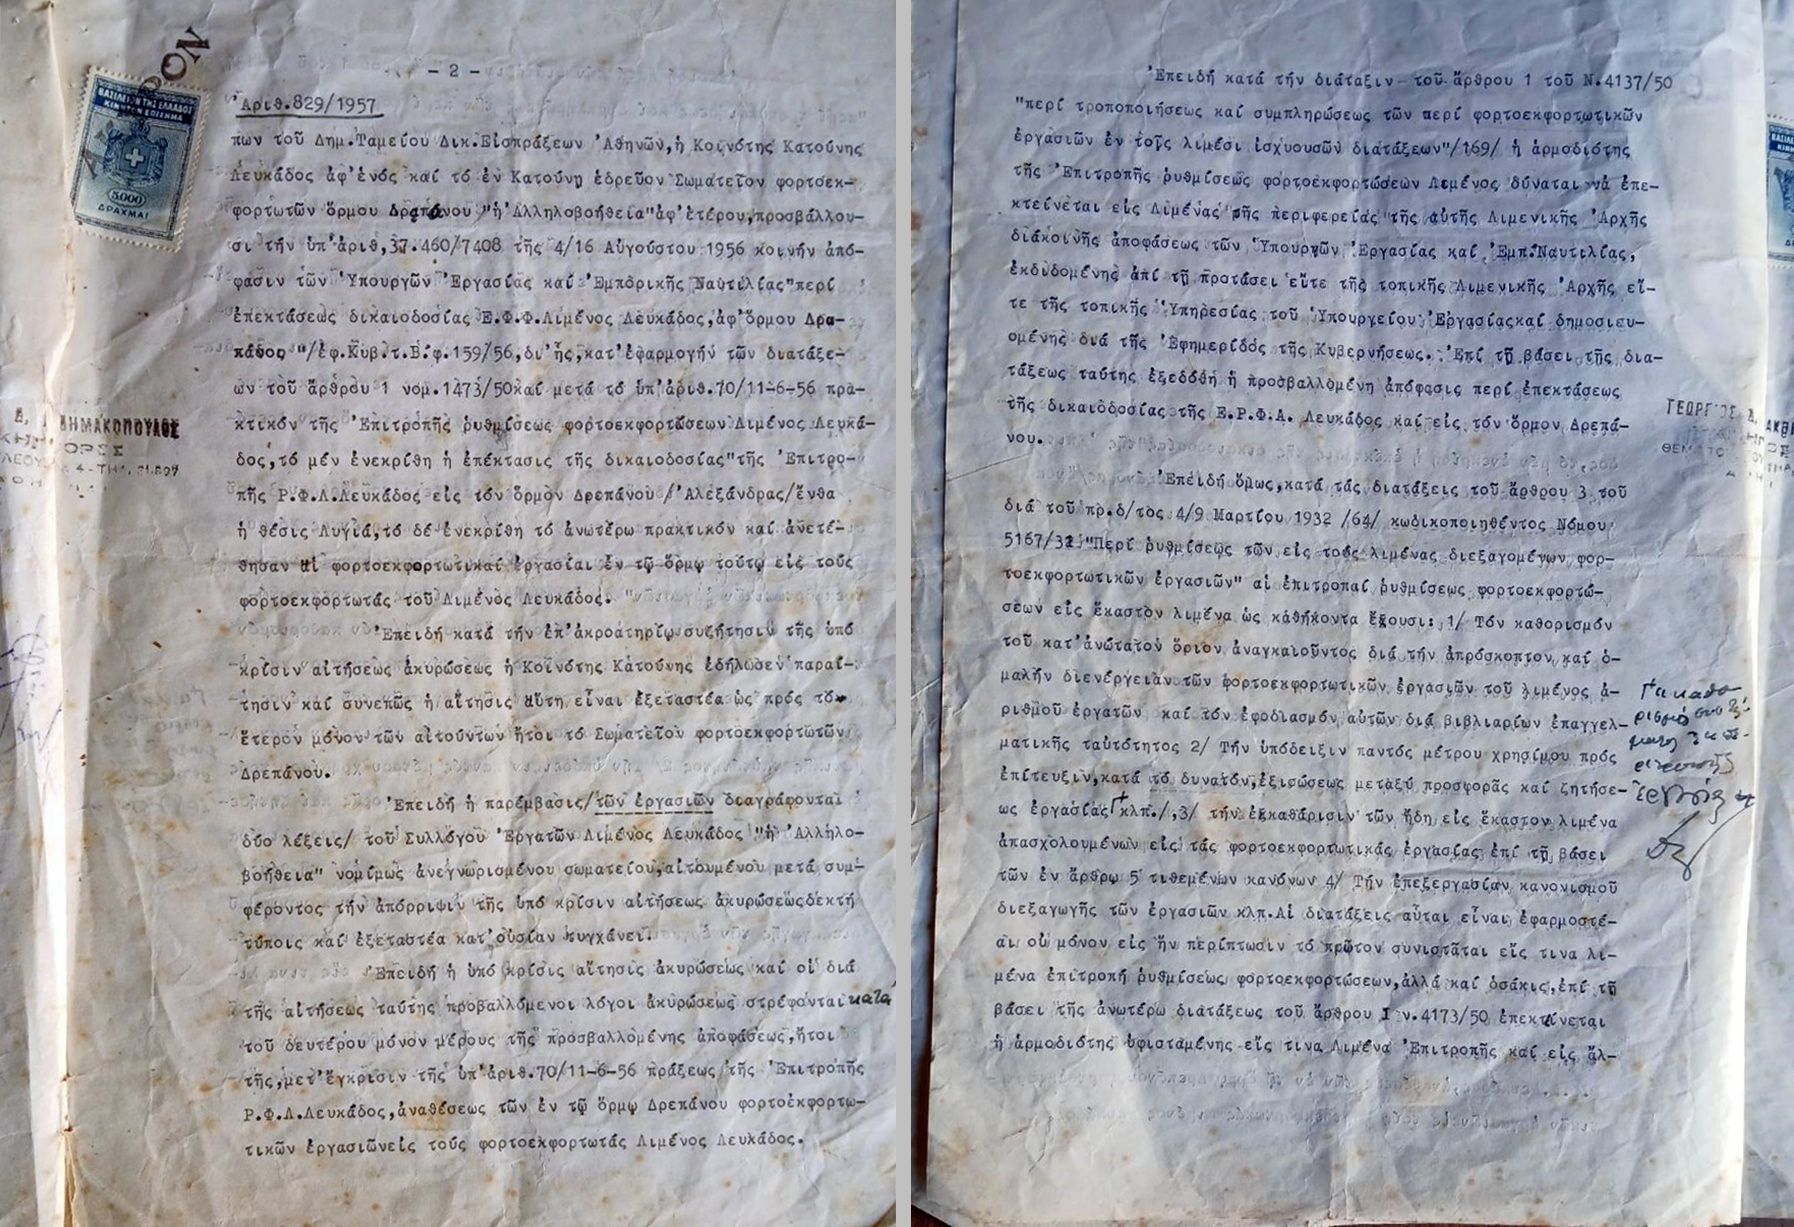 - 2 -
Ἀριθ.829/1957
πων τοῦ Δημ.Ταμείου Δικ.Εἰσπράξεων Ἀθηνῶν,ἡ Κοινότης Κατούνης
Λευκάδος ἀφ'ἑνός καί τό ἐν Κατούνῃ ἑδρεῦον Σωματεῖον φορτοεκ-
φορτωτῶν ὅρμου Δρεπάνου "ἡ Ἀλληλοβοήθεια"ἀφ'ἑτέρου,προσβάλλου-
σι τήν ὑπ'ἀριθ,37.460/7408 τῆς 4/16 Αὐγούστου 1956 κοινήν ἀπό-
φασιν τῶν Ὑπουργῶν Ἐργασίας καί Ἐμπορικῆς Ναυτιλίας"περί
ἐπεκτάσεως δικαιοδοσίας Ε.Φ.Φ.Λιμένος Λευκάδος,ἀφ'ὅρμου Δρα-
πάνος "/ἐφ.Κυβ.τ.Β.φ.159/56,δι'ἧς,κατ'ἐφαρμογήν τῶν διατάξε-
ων τοῦ ἄρθρου 1 νομ.1473/50καί μετά τό ὑπ'ἀριθ.70/11-6-56 πρα-
κτικόν τῆς Ἐπιτροπῆς ρυθμίσεως φορτοεκφορτώσεων Λιμένος Λευκά-
δος,τό μέν ἐνεκρίθη ἡ ἐπέκτασις τῆς δικαιοδοσίας"τῆς Ἐπιτρο-
πῆς Ρ.Φ.Λ.Λευκάδος εἰς τόν ὅρμον Δρεπάνου /Ἀλεξάνδρας/ἔνθα
ἡ θέσις Λυγιά,τό δέ ἐνεκρίθη τό ἀνωτέρω πρακτικόν καί ἀνετέ-
θησαν αἱ φορτοεκφορτωτικαί ἐργασίαι ἐν τῷ ὅρμῳ τούτῳ εἰς τούς
φορτοεκφορτωτάς τοῦ Λιμένος Λευκάδος.
Ἐπειδή κατά τήν ἐπ'ἀκροατηρίῳ συζήτησιν τῆς ὑπό
κρίσιν αἰτήσεως ἀκυρώσεως ἡ Κοινότης Κατούνης ἐδήλωσεν παραί-
τησιν καί συνεπῶς ἡ αἴτησις αὕτη εἶναι ἐξεταστέα ὡς πρός τόν
ἕτερον μόνον τῶν αἰτούντων ἤτοι τό Σωματεῖον φορτοεκφορτωτῶν
Δρεπάνου.
Ἐπειδή ἡ παρέμβασις/τῶν ἐργασιῶν διαγράφονται
δύο λέξεις/ τοῦ Συλλόγου Ἐργατῶν Λιμένος Λευκάδος "ἡ Ἀλληλο-
βοήθεια" νομίμως ἀνεγνωρισμένου σωματείου,αἰτουμένου μετά συμ-
φέροντος τήν ἀπόρριψιν τῆς ὑπό κρίσιν αἰτήσεως ἀκυρώσεωςδεκτή
τύποις καί ἐξεταστέα κατ'οὐσίαν τυγχάνει.
Ἐπειδή ἡ ὑπό κρίσις αἴτησις ἀκυρώσεως καί οἱ διά
τῆς αἰτήσεως ταύτης προβαλλόμενοι λόγοι ἀκυρώσεως στρέφονται κατά
τοῦ δευτέρου μόνον μέρους τῆς προσβαλλομένης ἀποφάσεως,ἤτοι
τῆς,μετ'ἔγκρισιν τῆς ὑπ'ἀριθ.70/11-6-56 πράξεως τῆς Ἐπιτροπῆς
Ρ.Φ.Λ.Λευκάδος,ἀναθέσεως τῶν ἐν τῷ ὅρμῳ Δρεπάνου φορτοεκφορτω-
τικῶν ἐργασιῶνεἰς τούς φορτοεκφορτωτάς Λιμένος Λευκάδος.
ΒΑΣΙΛΕΙΟΝ ΤΗΣ ΕΛΛΑΔΟΣ
ΚΙΝΗΤΟΝ ΕΠΙΣΗΜΑ
5000
ΔΡΑΧΜΑΙ
ΔΗΜΑΚΟΠΟΥΛΟΣ
Ἐπειδή κατά τήν διάταξιν τοῦ ἄρθρου 1 τοῦ Ν.4137/50
"περί τροποποιήσεως καί συμπληρώσεως τῶν περί φορτοεκφορτωτικῶν
ἐργασιῶν ἐν τοῖς λιμέσι ἰσχυουσῶν διατάξεων"/169/ ἡ ἁρμοδιότης
τῆς Ἐπιτροπῆς ρυθμίσεως φορτοεκφορτώσεων Λιμένος δύναται νά ἐπε-
κτείνεται εἰς Λιμένας τῆς περιφερείας τῆς αὐτῆς Λιμενικῆς Ἀρχῆς
διάκοινῆς ἀποφάσεως τῶν Ὑπουργῶν Ἐργασίας καί Ἐμπ.Ναυτιλίας,
ἐκδιδομένης ἐπί τῇ προτάσει εἴτε τῆς τοπικῆς Λιμενικῆς Ἀρχῆς εἴ-
τε τῆς τοπικῆς Ὑπηρεσίας τοῦ Ὑπουργείου Ἐργασίαςκαί δημοσιευ-
ομένης διά τῆς Ἐφημερίδος τῆς Κυβερνήσεως. Ἐπί τῇ βάσει τῆς δια-
τάξεως ταύτης ἐξεδόθη ἡ προσβαλλομένη ἀπόφασις περί ἐπεκτάσεως
τῆς δικαιοδοσίας τῆς Ε.Ρ.Φ.Λ. Λευκάδος καί εἰς τόν ὅρμον Δρεπά-
νου.
Ἐπειδή ὅμως,κατά τάς διατάξεις τοῦ ἄρθρου 3 τοῦ
διά τοῦ πρ.δ/τος 4/9 Μαρτίου 1932 /64/ κωδικοποιηθέντος Νόμου
5167/32 "Περί ρυθμίσεως τῶν εἰς τούς λιμένας διεξαγομένων φορ-
τοεκφορτωτικῶν ἐργασιῶν" αἱ ἐπιτροπαί ρυθμίσεως φορτοεκφορτώ-
σεων εἰς ἕκαστον λιμένα ὡς καθήκοντα ἔχουσι: 1/ Τόν καθορισμόν
τοῦ κατ'ἀνώτατον ὅριον ἀναγκαιοῦντος διά τήν ἀπρόσκοπτον καί ὁ-
μαλήν διενέργειαν τῶν φορτοεκφορτωτικῶν ἐργασιῶν τοῦ λιμένος ἀ-
ριθμοῦ ἐργατῶν καί τόν ἐφοδιασμόν αὐτῶν διά βιβλιαρίων ἐπαγγελ-
ματικῆς ταὐτότητος 2/ Τήν ὑπόδειξιν παντός μέτρου χρησίμου πρός
ἐπίτευξιν,κατά τό δυνατόν,ἐξισώσεως μεταξύ προσφορᾶς καί ζητήσε-
ως ἐργασίας κλπ./,3/ τήν ἐκκαθάρισιν τῶν ἤδη εἰς ἕκαστον λιμένα
ἀπασχολουμένων εἰς τάς φορτοεκφορτωτικάς ἐργασίας ἐπί τῇ βάσει
τῶν ἐν ἄρθρῳ 5 τιθεμένων κανόνων 4/ Τήν ἐπεξεργασίαν κανονισμοῦ
διεξαγωγῆς τῶν ἐργασιῶν κλπ.Αἱ διατάξεις αὗται εἶναι ἐφαρμοστέ-
αι οὐ μόνον εἰς ἥν περίπτωσιν τό πρῶτον συνιστᾶται εἴς τινα λι-
μένα ἐπιτροπή ρυθμίσεως φορτοεκφορτώσεων,ἀλλά καί ὁσάκις,ἐπί τῇ
βάσει τῆς ἀνωτέρω διατάξεως τοῦ ἄρθρου Ι ν.4173/50 ἐπεκτείνεται
ἡ ἁρμοδιότης ὑφισταμένης εἴς τινα Λιμένα Ἐπιτροπῆς καί εἰς ἄλ-
ΓΕΩΡΓΙΟΣ